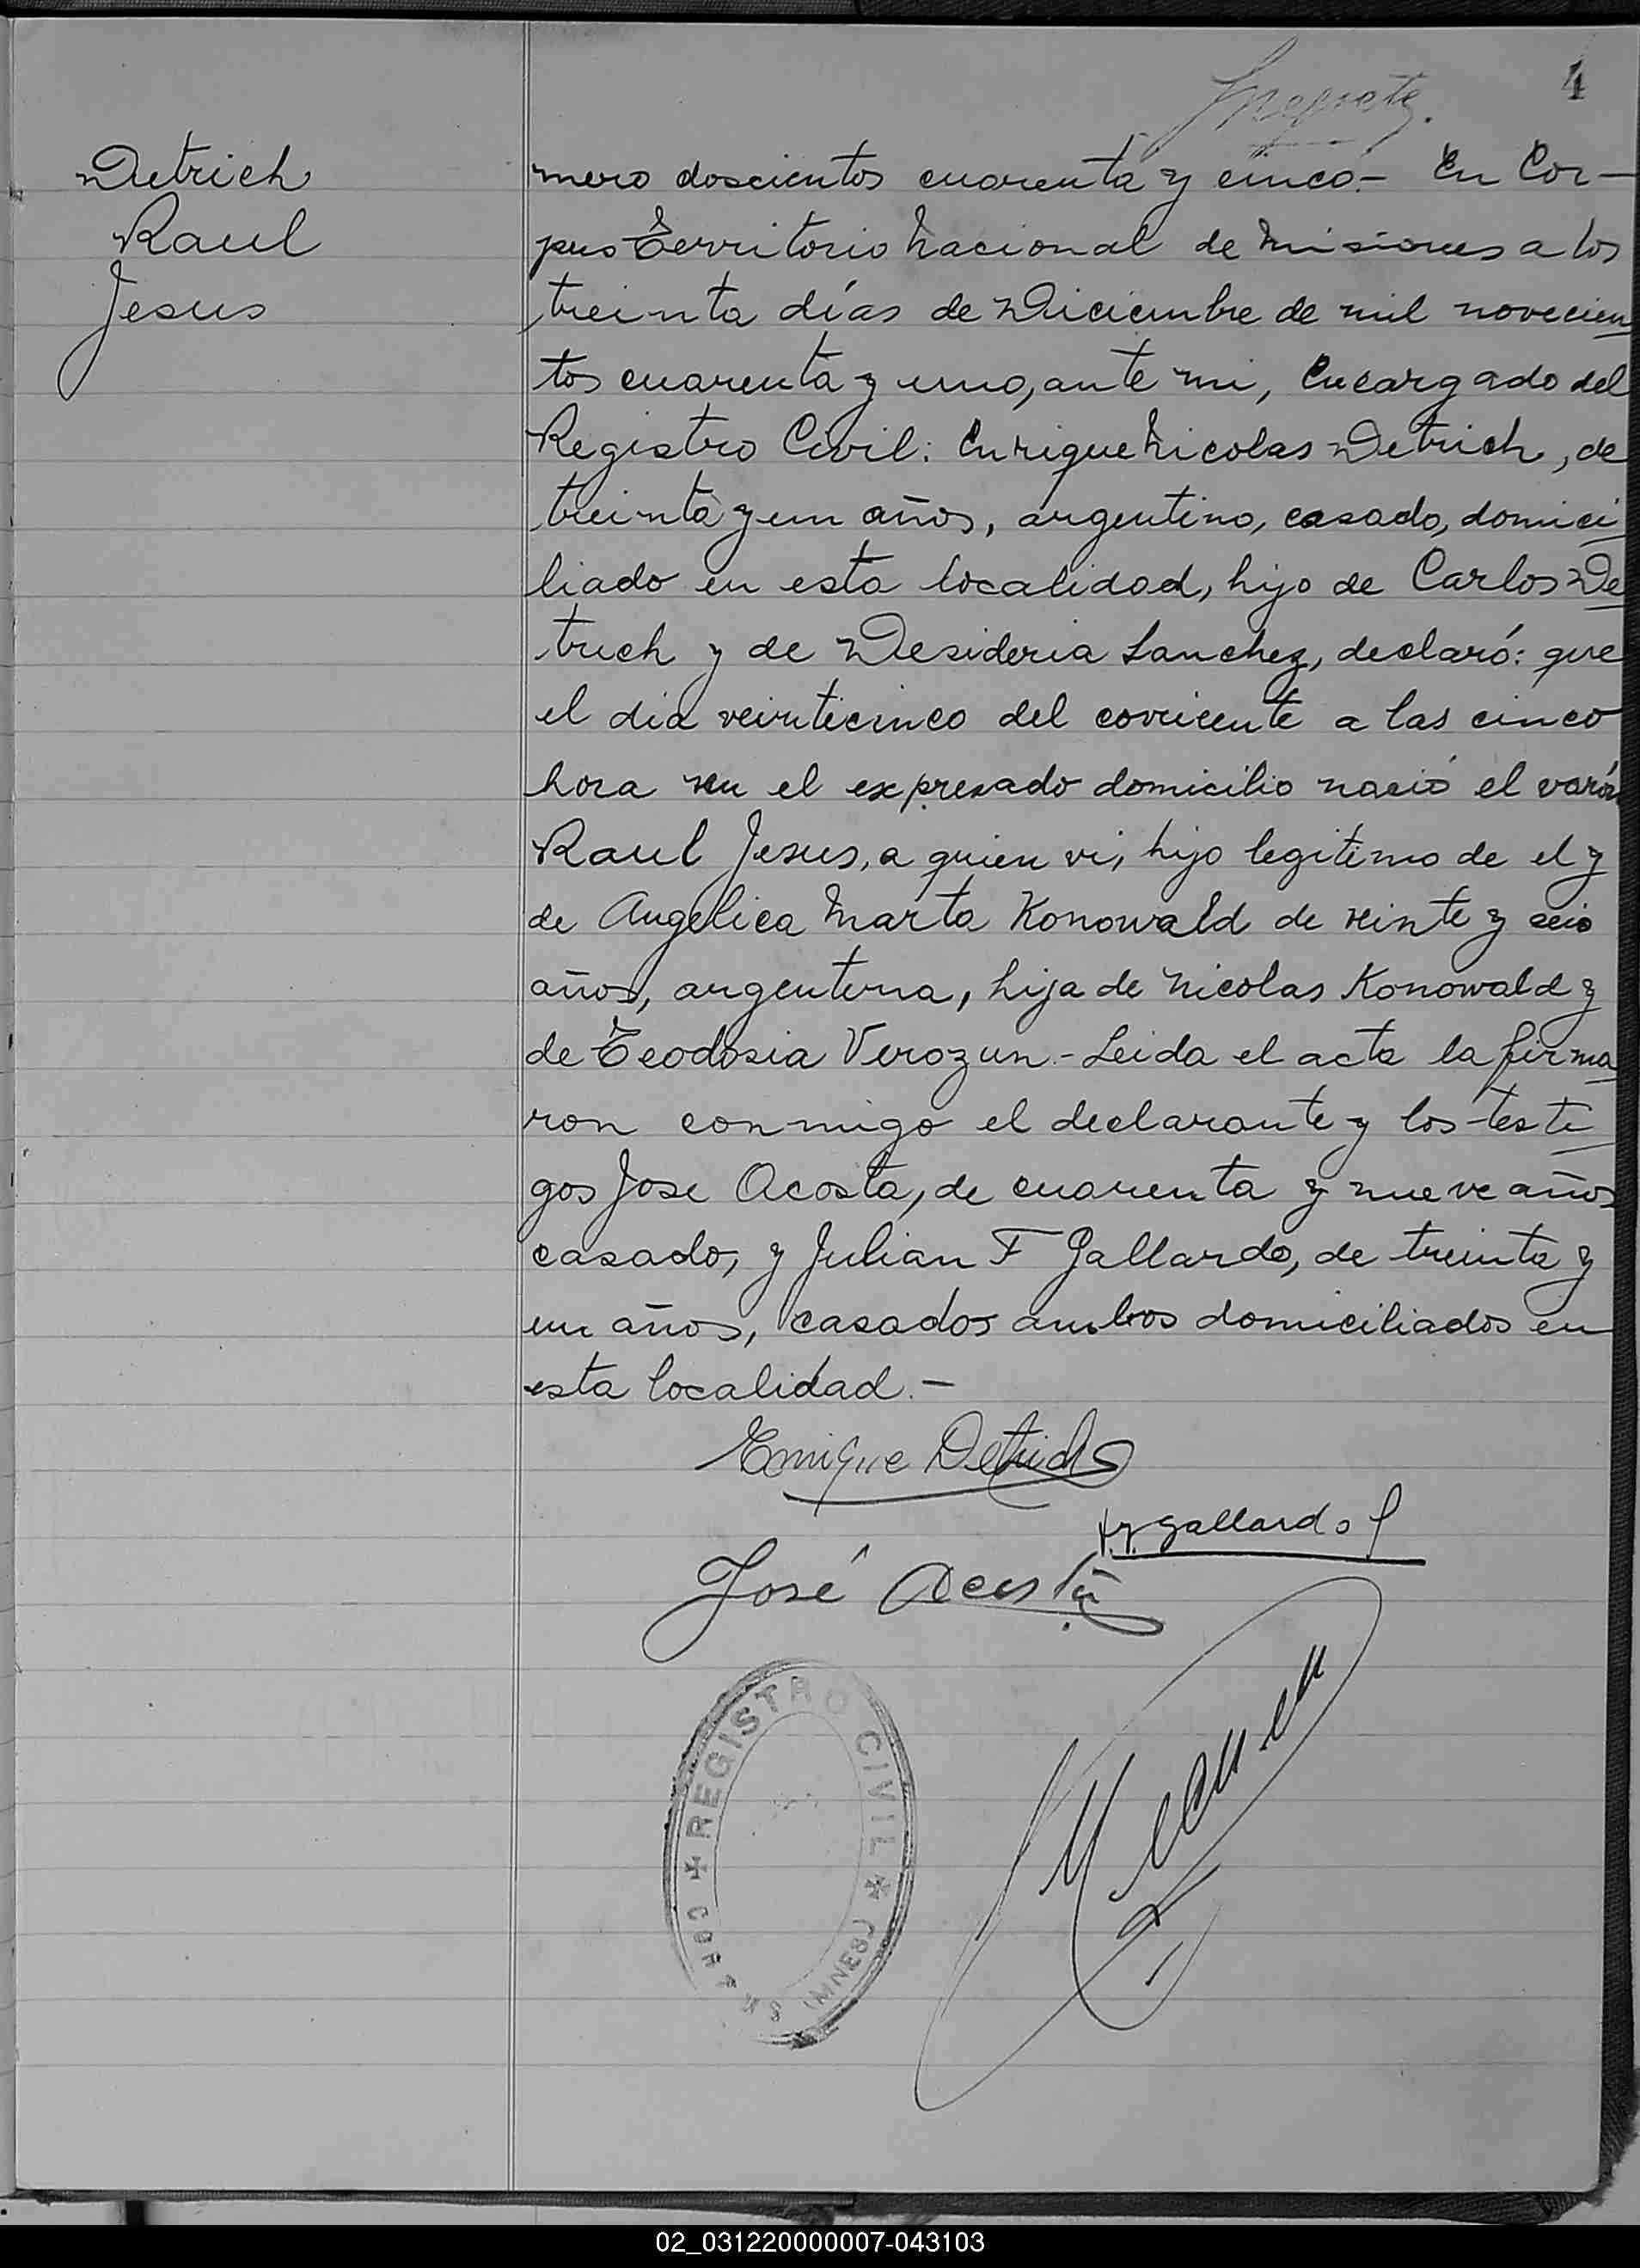 4
Detrich
Raul
Jesus
mero doscientos cuarenta y cinco.- En Cor-
pus Territorio Nacional de Misiones a los
treinta días de Diciembre de mil novecien
tos cuarenta y uno, ante mi, Encargado del
Registro Civil: Enrique Nicolas Detrich, de
treinta y un años, argentino, casado, domici
liado en esta localidad, hijo de Carlos De
trich y de Desideria Sanchez, declaró: que
el dia veinticinco del corriente a las cinco
hora en el expresado domicilio nació el varón
Raul Jesus, a quien vi, hijo legitimo de el y
de Angelica Marta Konowald de veinte y seis
años, argentina, hija de Nicolas Konowald y
de Teodosia Verozun.- Leida el acta la firma
ron conmigo el declarante y los testi
gos Jose Acosta, de cuarenta y nueve años
casado, y Julian F Gallardo, de treinta y
un años, casados ambos domiciliados en
esta localidad.-
Enrique Detrich
Gallardo
José Acosta
REGISTRO CIVIL
CORPUS (MNES)
02_031220000007-043103